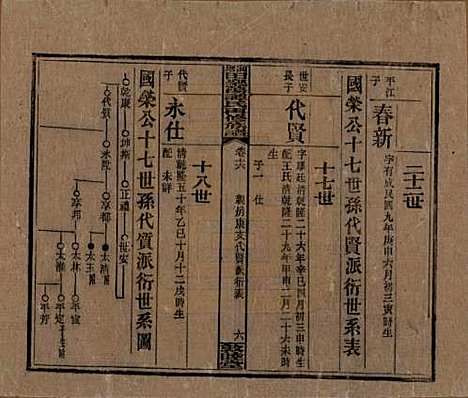 二十二世
平江子
春新
字有成民國九年庚申六月初三寅時生
國榮公十七世孫代賢派衍世系表
十七世
世安長子
代賢
字廷清乾隆二十六年辛巳四月初三申時生
配王氏清乾隆二十九年甲申二月二十六未時生
子一 仕
卷十六
朝炳康支代賢派衍表
六
十八世
代賢子
永仕
清乾隆五十年乙巳十月十二戌時生
配 未詳
國榮公十七世孫代質派衍世系圖
乾康 坤 正 世安
代質 永 享都 太清
太玉
享邦 太林 平宣
太 平定
平芳